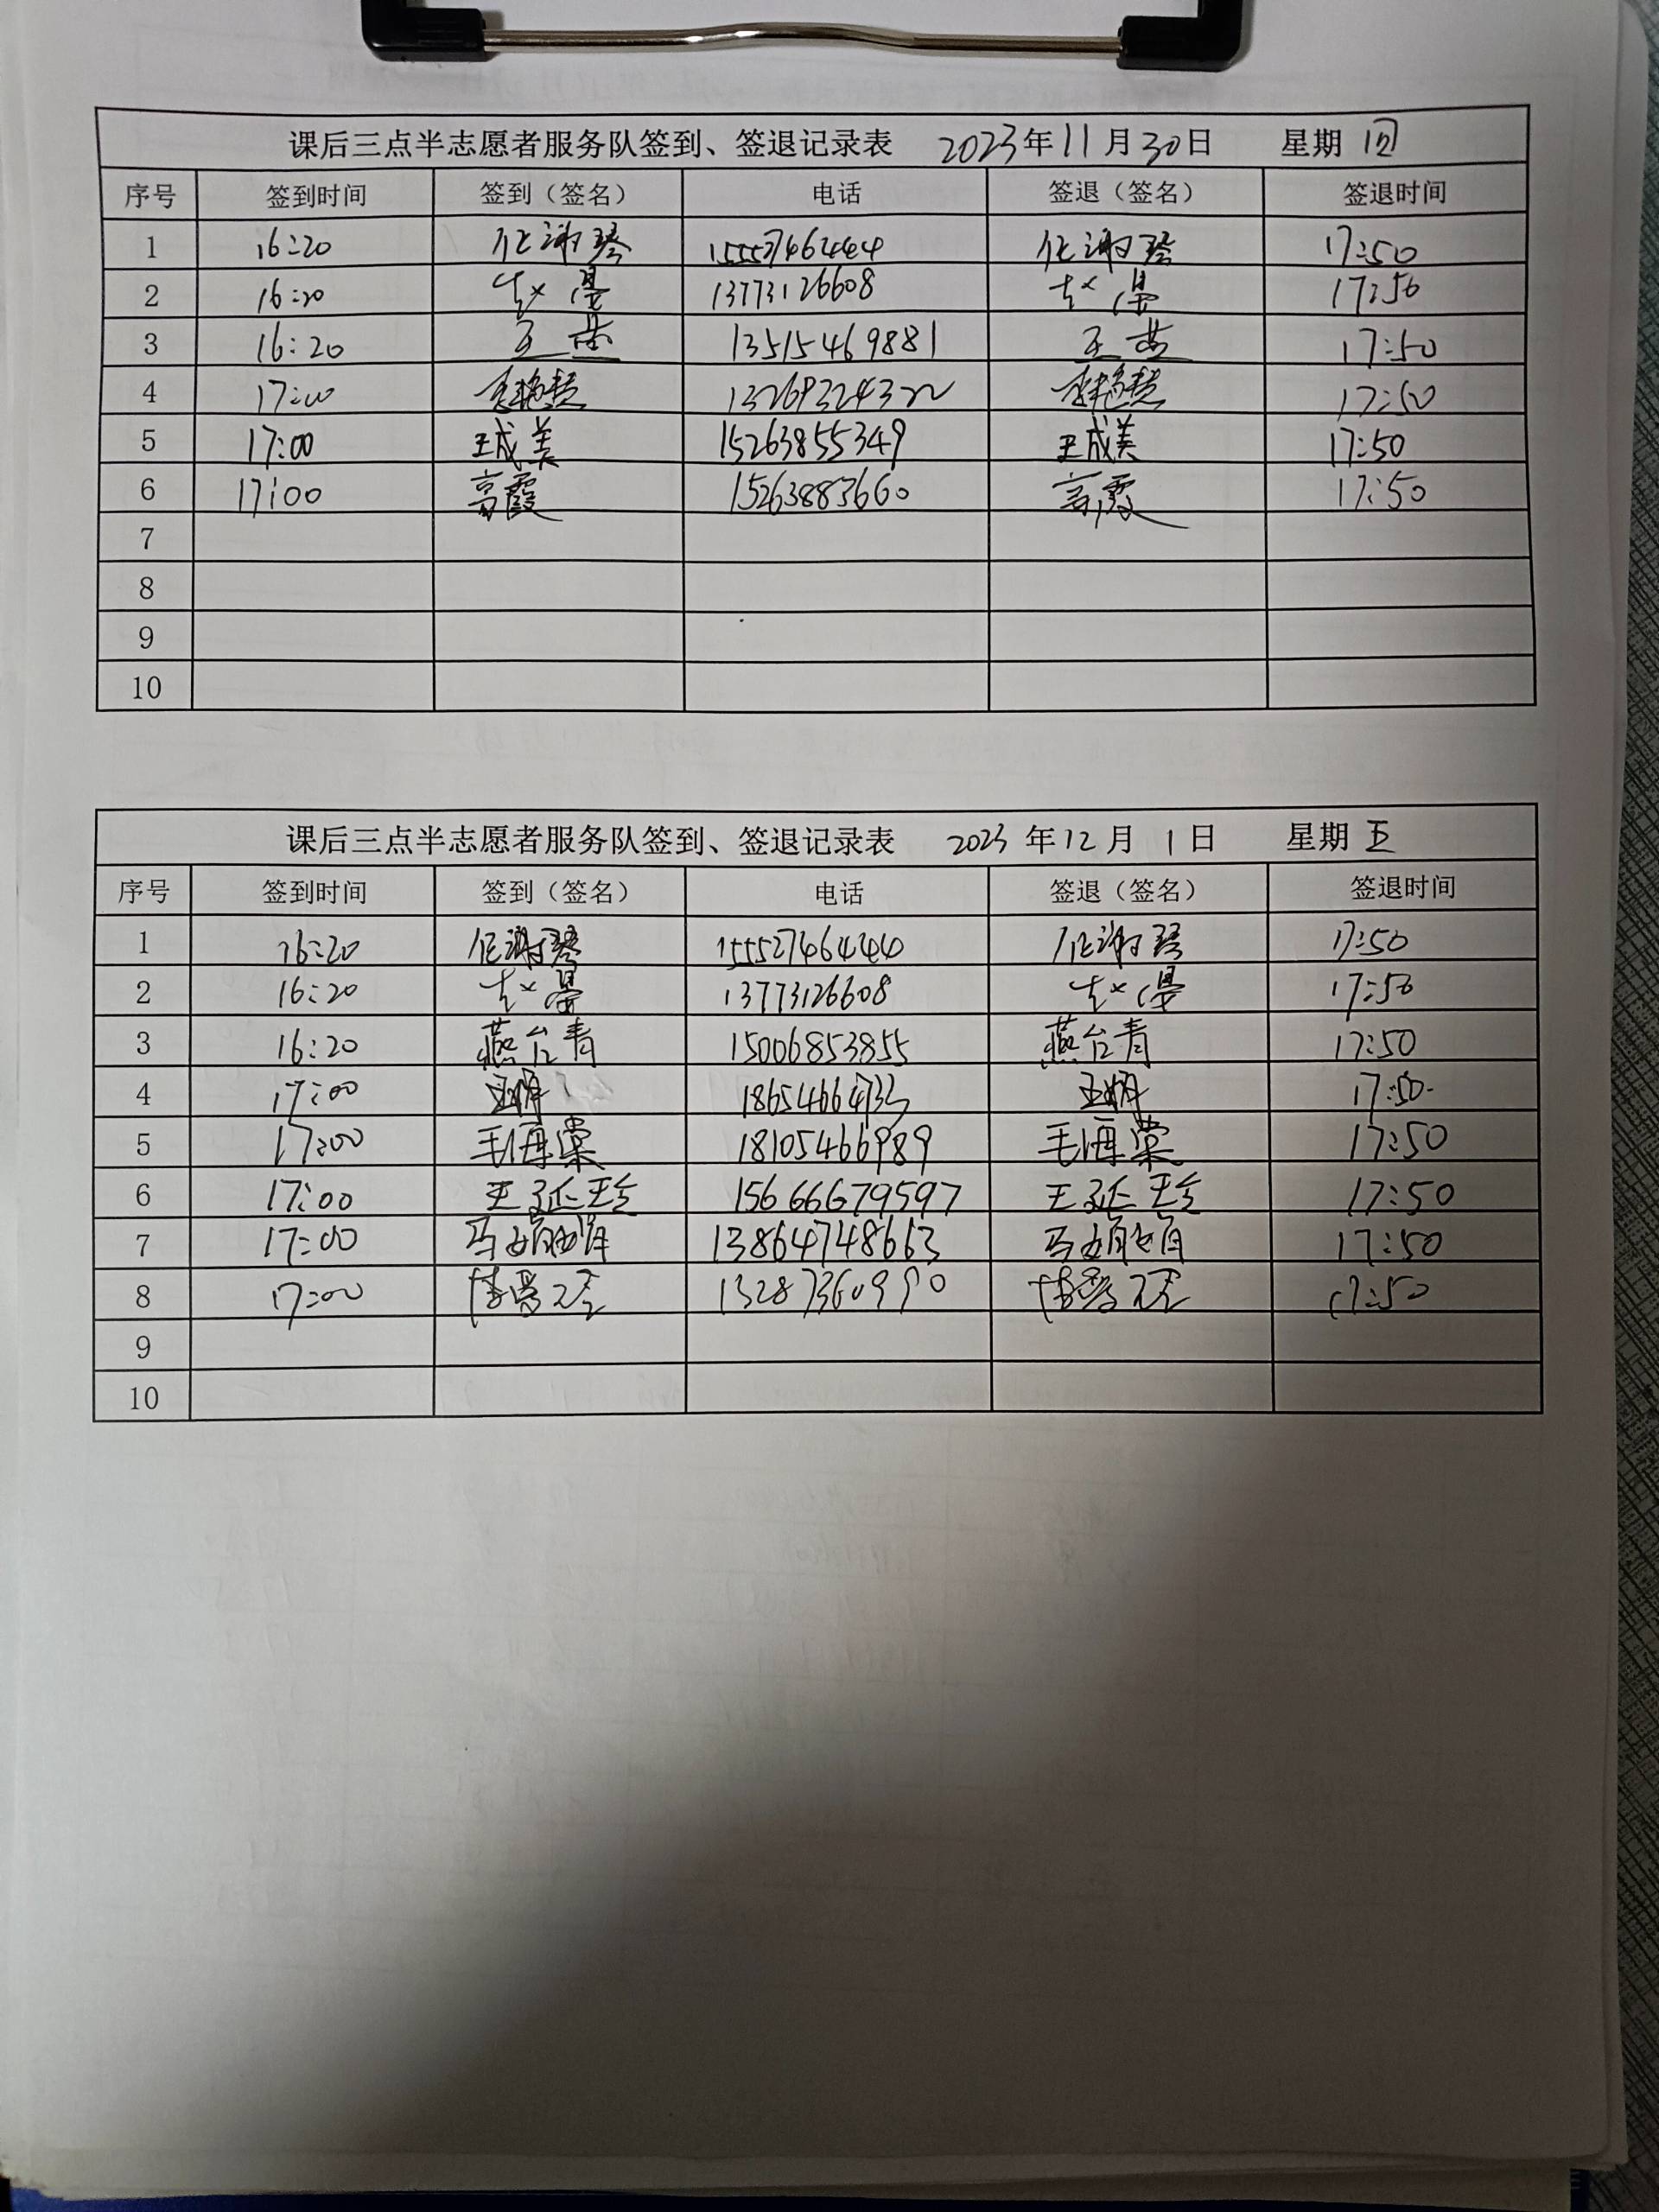 课后三点半志愿者服务队签到、签退记录表 2023年11月30日 星期四
序号 签到时间 签到（签名） 电话 签退（签名） 签退时间
1 16:20 任谢琴 15552746444 任谢琴 17:50
2 16:20 赵 13773126608 赵 17:50
3 16:20 王 13515469881 王 17:50
4 17:00 李艳慧 13269324322 李艳慧 17:50
5 17:00 王成美 15263855349 王成美 17:50
6 17:00 高霞 15263883660 高霞 17:50
7
8
9
10
课后三点半志愿者服务队签到、签退记录表 2023年12月1日 星期五
序号 签到时间 签到（签名） 电话 签退（签名） 签退时间
1 16:20 任谢琴 15552746444 任谢琴 17:50
2 16:20 赵 13773126608 赵 17:50
3 16:20 燕台青 15006853855 燕台青 17:50
4 17:00 王 18654664733 王 17:50
5 17:00 毛海棠 18105466989 毛海棠 17:50
6 17:00 王延玲 15666679597 王延玲 17:50
7 17:00 马娟娟 13864748663 马娟娟 17:50
8 17:00 13287360990 17:50
9
10